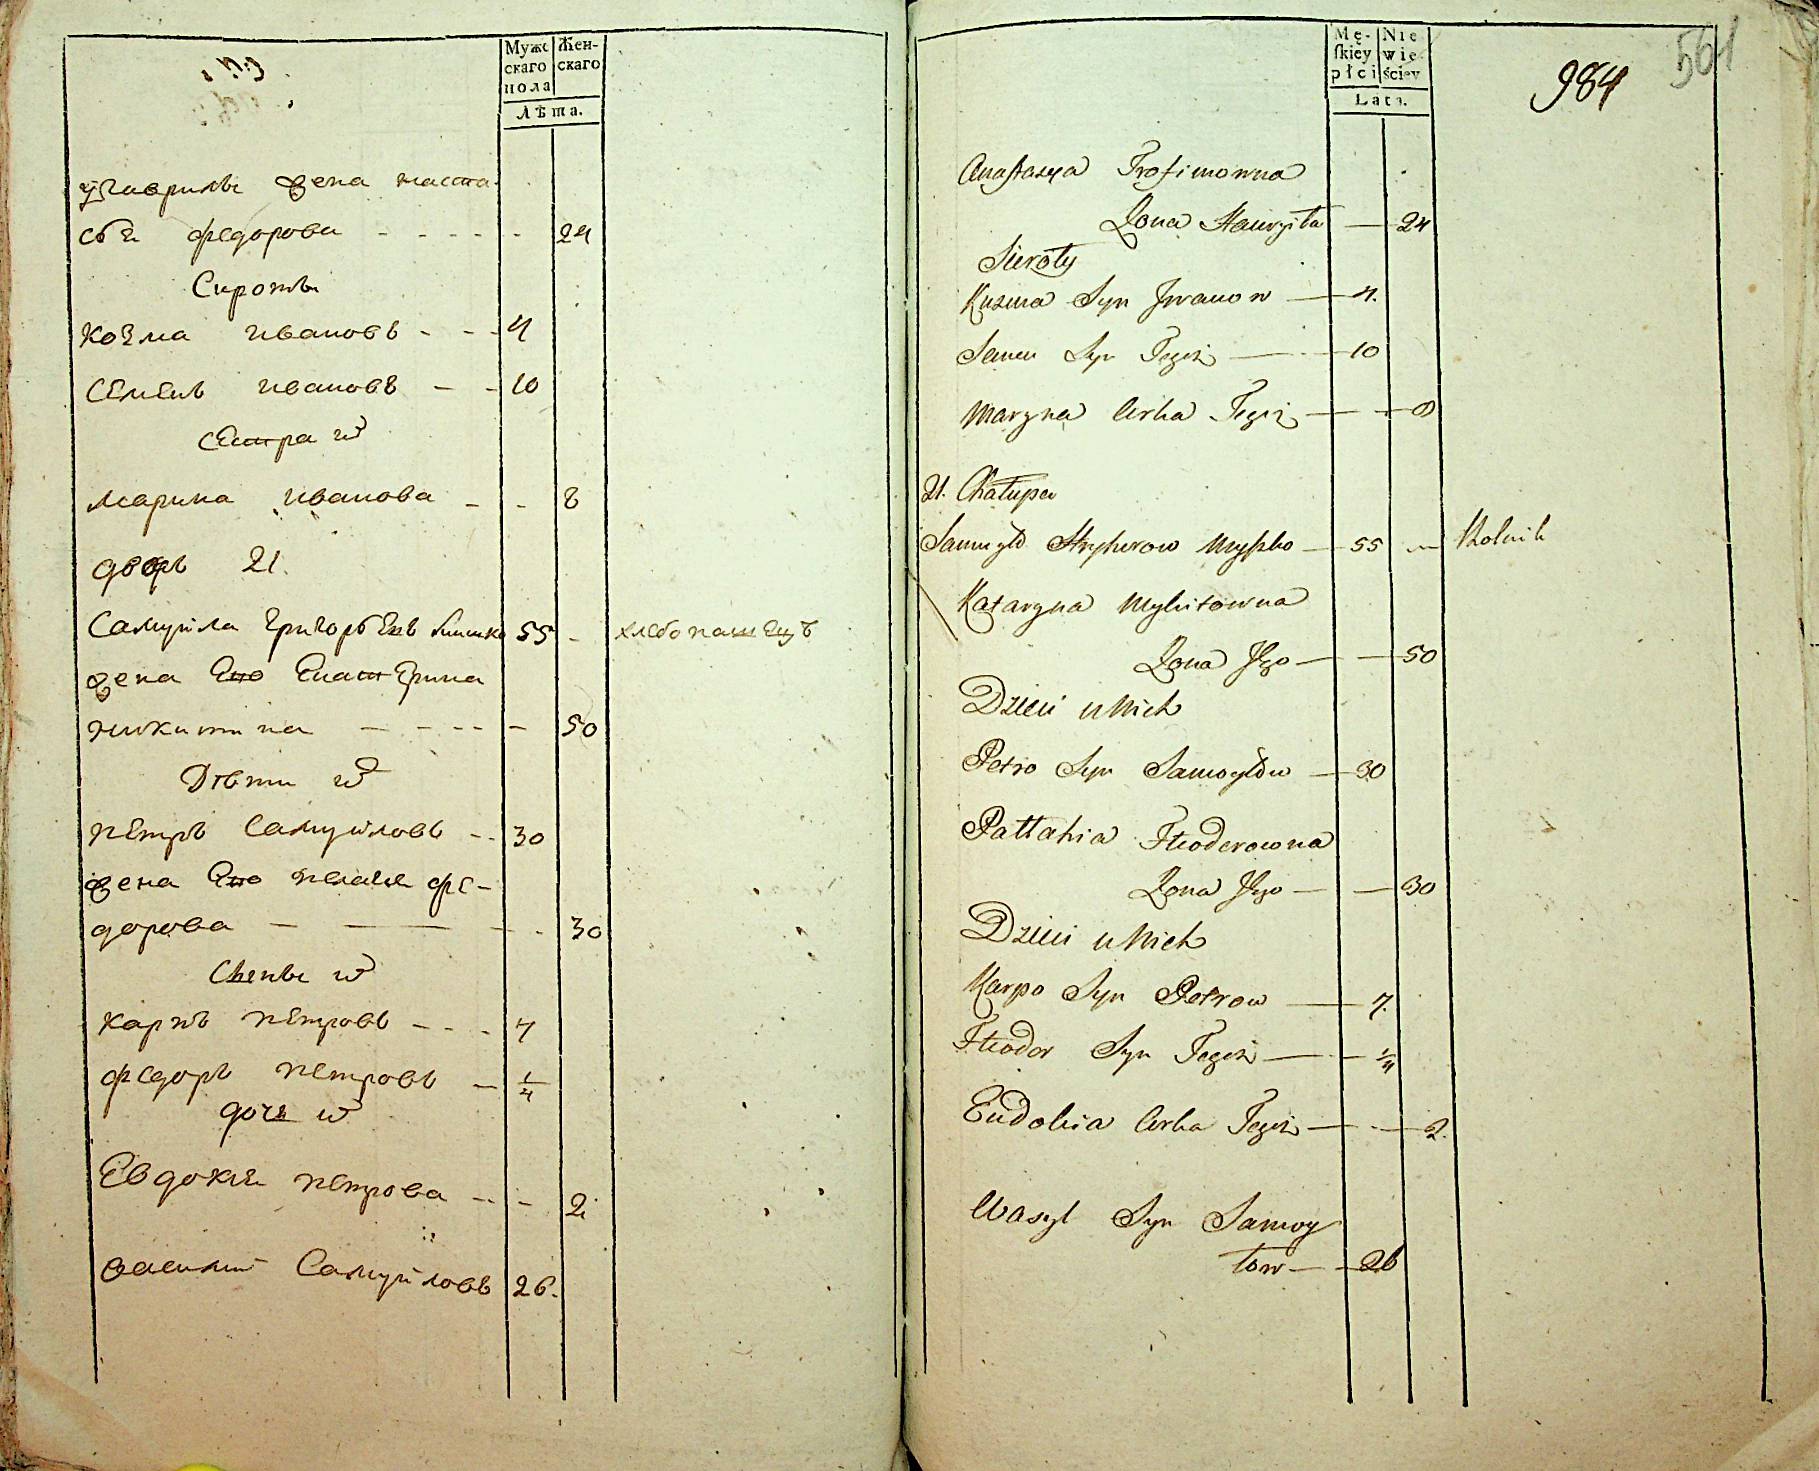 Мужс Жен-
скаго скаго
пола
Лѣта.
у Гаврилы жена наста
сья федорова - - - - - 24
Сироты
козма ивановъ - - - 4
семенъ ивановъ - - 10
сестра ихъ
марина иванова - - 8
дворъ 21.
Самуйла григорьевъ 55 - хлебопашецъ
жена его екатерина
никитина - - - - - 50
Дѣти ихъ
петръ Самуйловъ - - 30
жена его пелагея фе-
дорова - - - - 30
Сыны ихъ
карпъ петровъ - - - 7
федоръ петровъ - 1/4
дочь ихъ
Евдокия петрова - - - 2
василий Самуйловъ 26.
Mę- Nie
skiey wie-
płci ściey
Lata.
984
561
Anastazya Trofimowna
Zona Hawryiła — 24
Sieroty
Kuzma Syn Jwanow — 4.
Semen Syn Tegoż — 10
Maryna Corka Tegoż — 8
21. Chałupa
Samuyło Hryhorow — 55 — Rolnik
Katarzyna Mykitowna
Zona Jego — 50
Dzieci u Nich
Petro Syn Samoyłow — 30
Pałłahia Fteoderowna
Zona Jego — 30
Dzieci u Nich
Karpo Syn Petrow — 7.
Fteodor Syn Tegoż — 1/4
Eudokia Corka Tegoż — 2.
Wasyl Syn Samoy
łow — 26